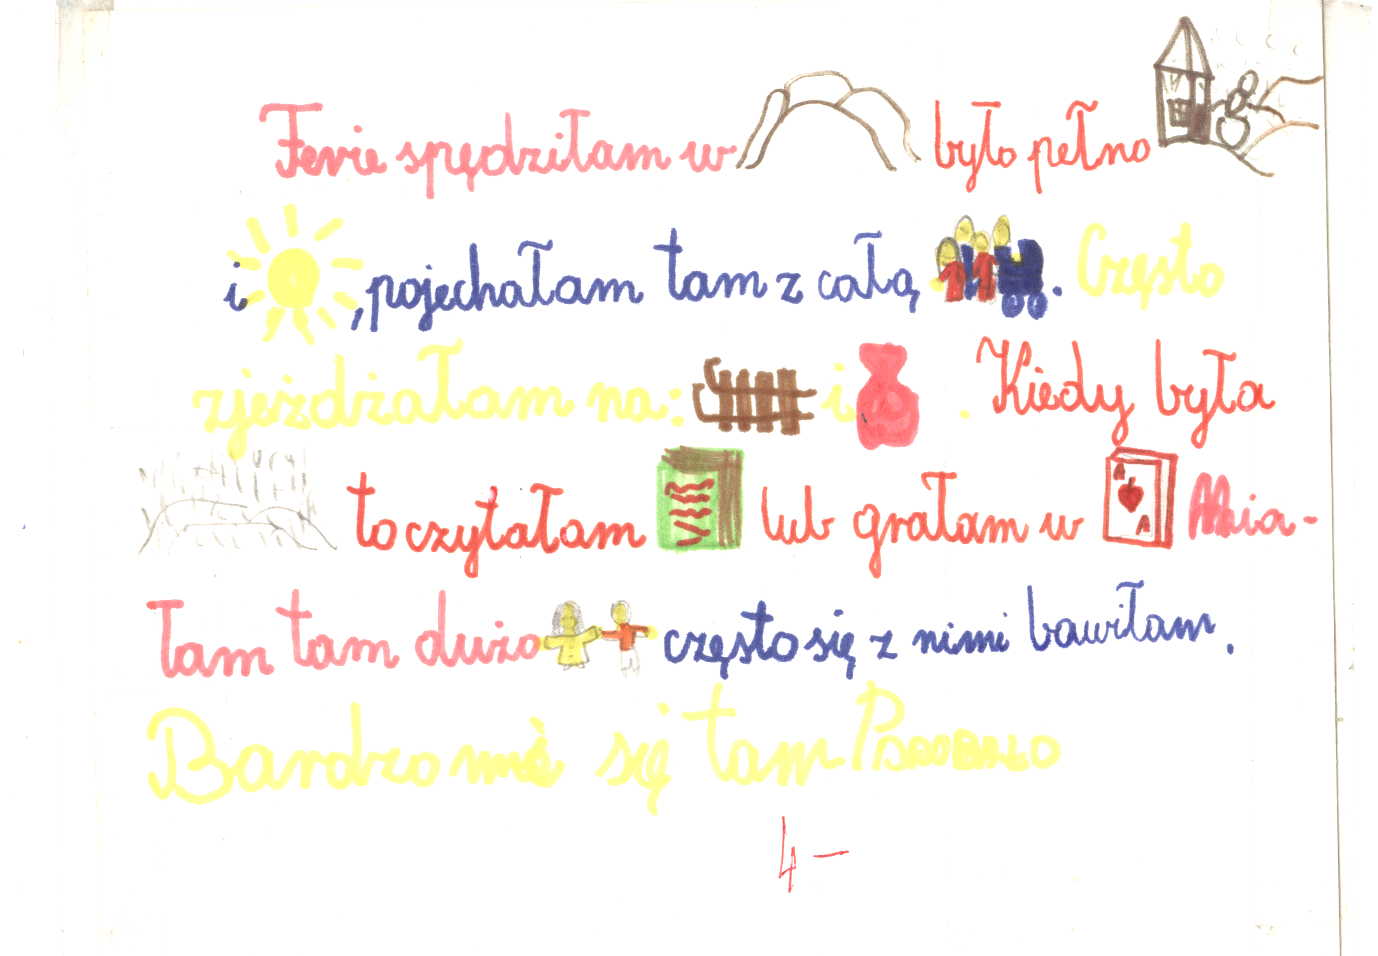 Ferie spędziłam w było pełno
i , pojechałam tam z całą . Często
zjeżdżałam na: i . Kiedy była
to czytałam lub grałam w Mia-
łam tam dużo często się z nimi bawiłam.
Bardzo mi się tam Podobało
4-